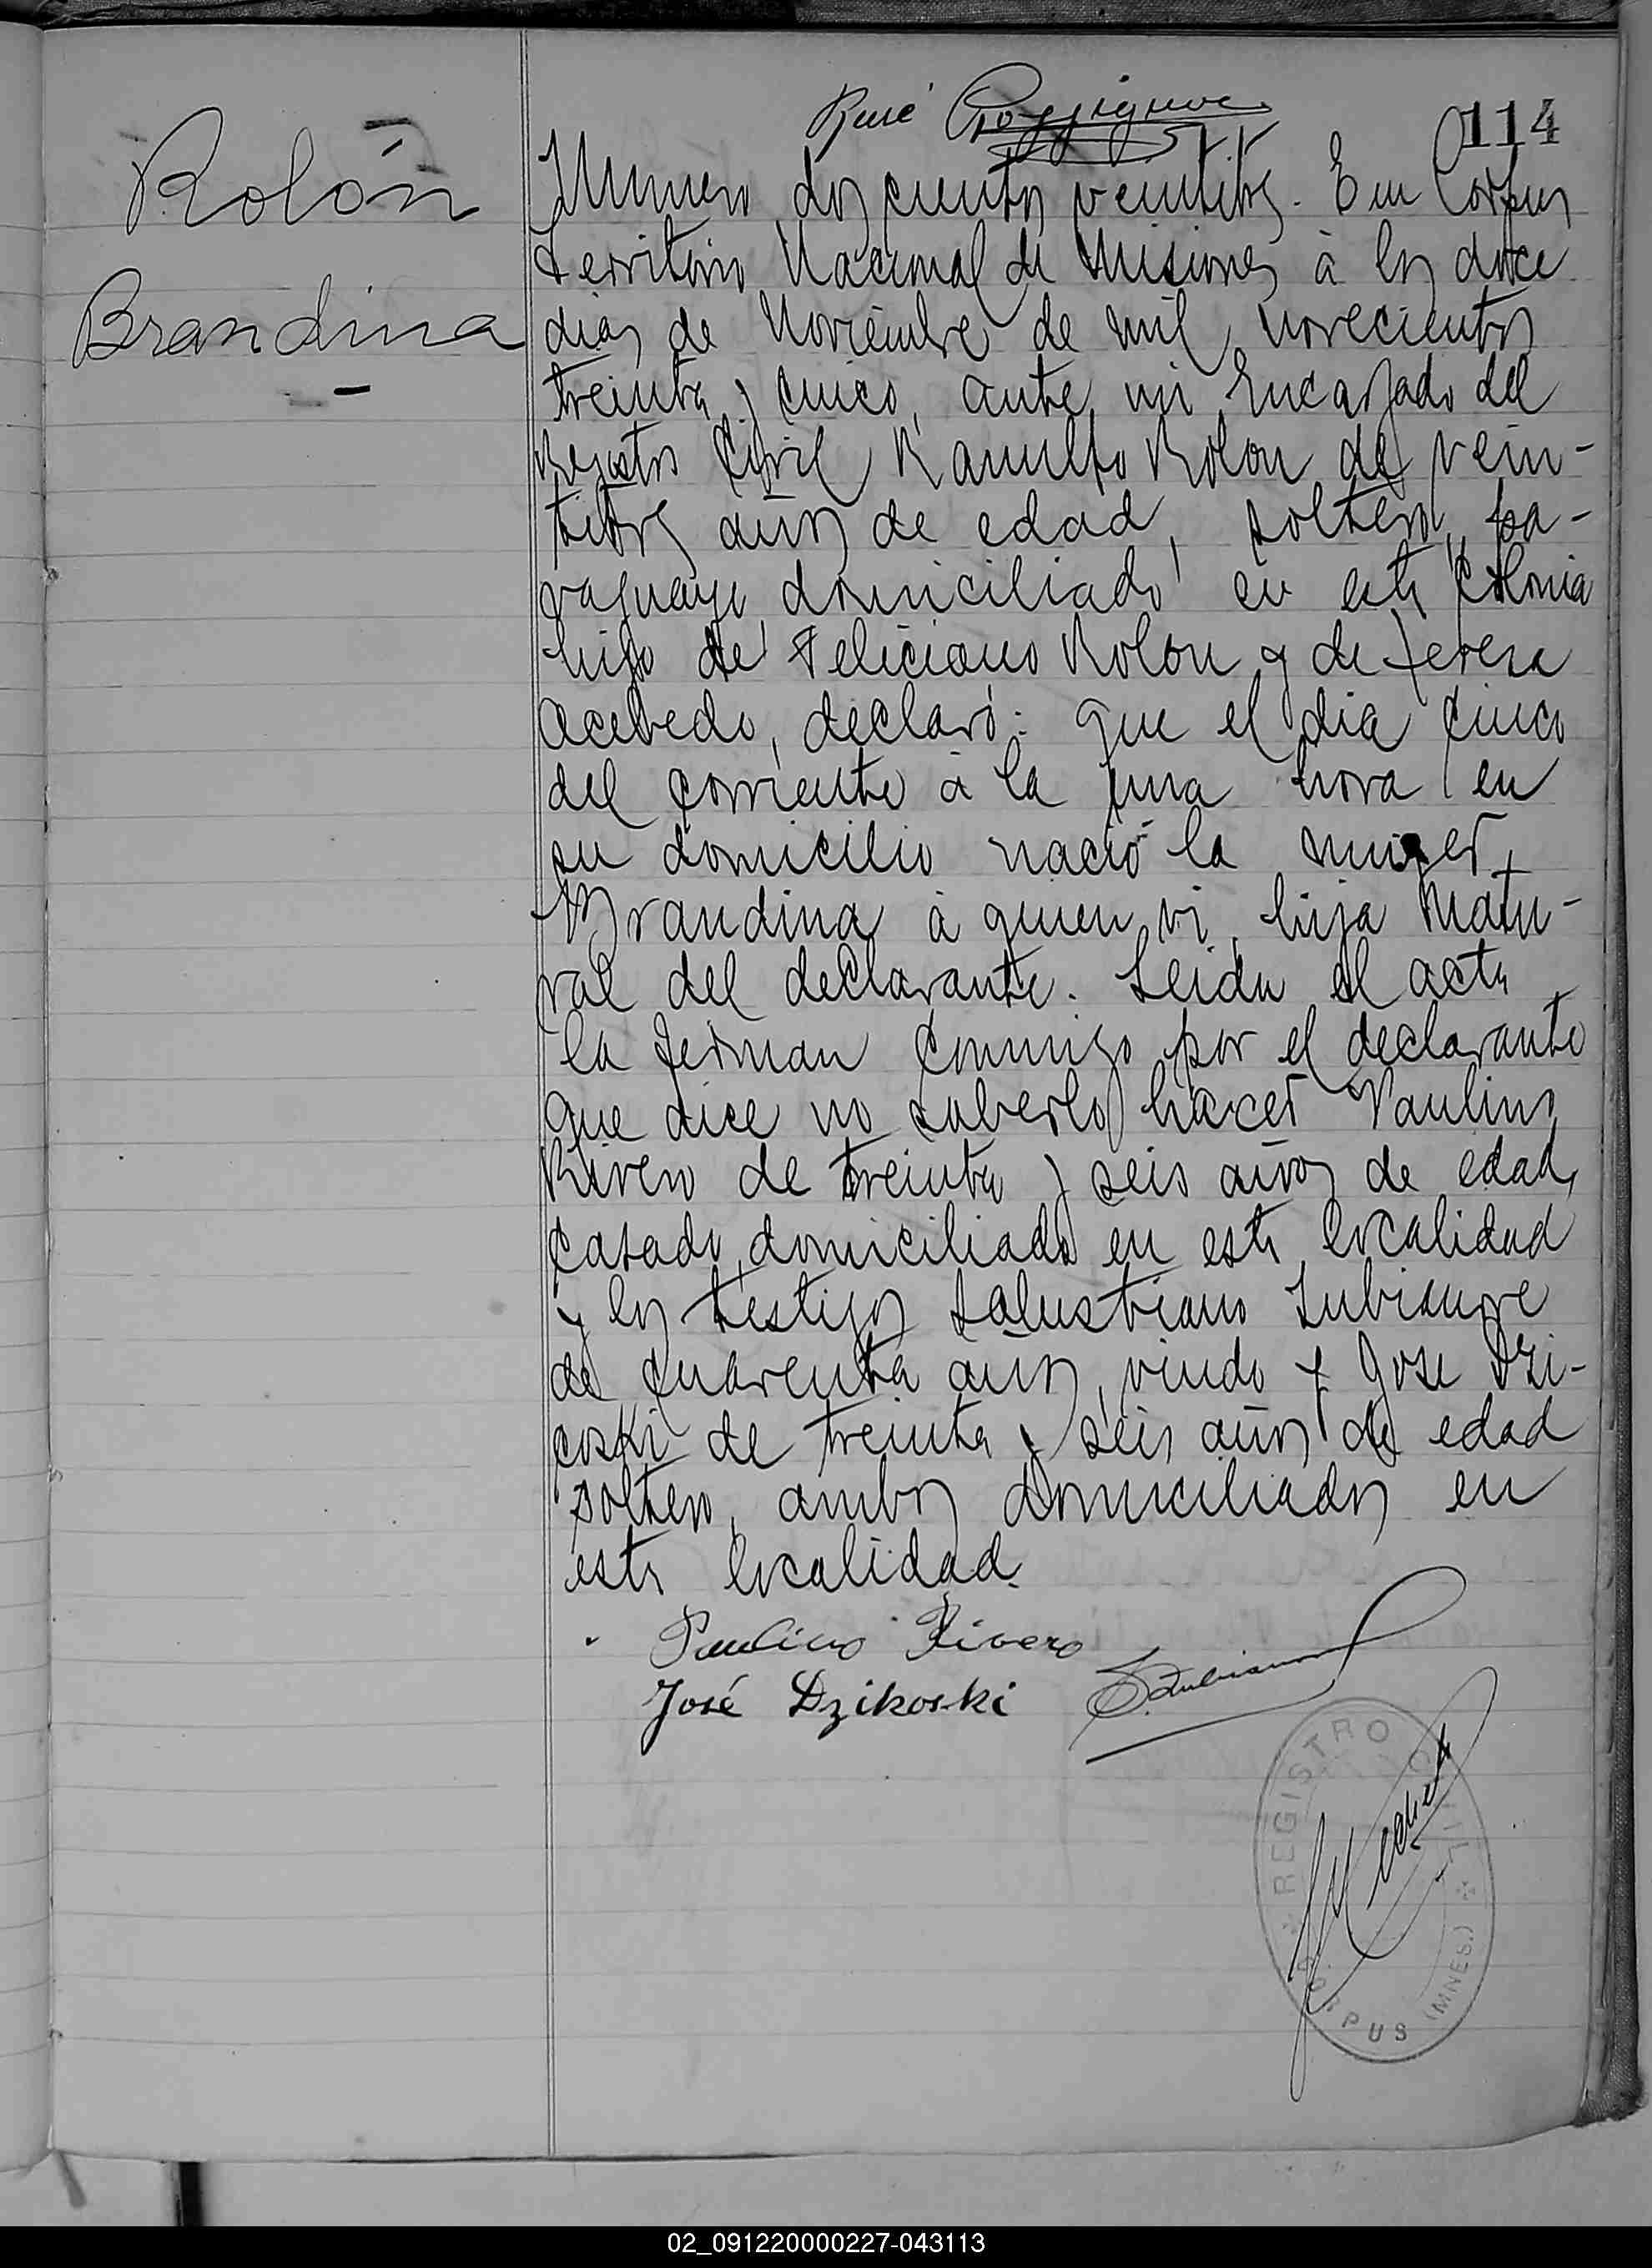 René
114
Rolón
Brandina
Numero dos cientos veintitres. En Corpus
Territorio Nacional de Misiones à los doce
dias de Noviembre de mil novecientos
treinta y cinco, ante mi Encargado del
Registro Civil Ranulfo Rolon de vein-
titres años de edad, soltero, pa-
raguayo, domiciliado en esta Colonia
hijo de Feliciano Rolon y de Teresa
Acevedo, declaró: que el dia cinco
del corriente à la una hora en
su domicilio nació la mujer
Brandina à quien vi, hija natu-
ral del declarante. Leida el acta
la firman conmigo por el declarante
que dice no saberlo hacer Paulino
Rivero de treinta y seis años de edad,
casado, domiciliado en esta localidad
y los testigos Salustiano
de cuarenta años, viudo y Jose Dzi-
coski de treinta y seis años de edad
soltero, ambos domiciliados en
esta localidad.
Paulino Rivero
José Dzikoski
REGISTRO CIVIL
CORPUS (MNES.)
02_091220000227-043113